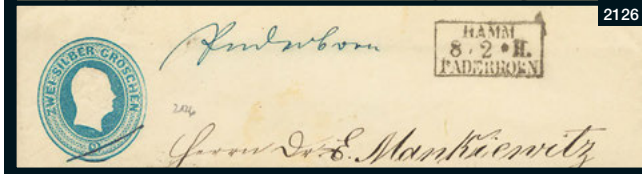 2126
Paderborn
HAMM
8 · 2 * II.
PADERBORN
ZWEI SILBER GROSCHEN
2
2126
Herrn Dr. E. Mankiewitz